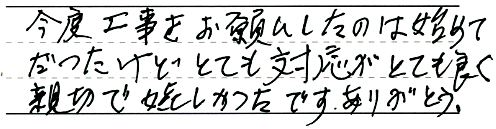 今度工事をお願いしたのは始めて
だったけどとても対応がとても良く
親切で嬉しかったです。ありがとう。